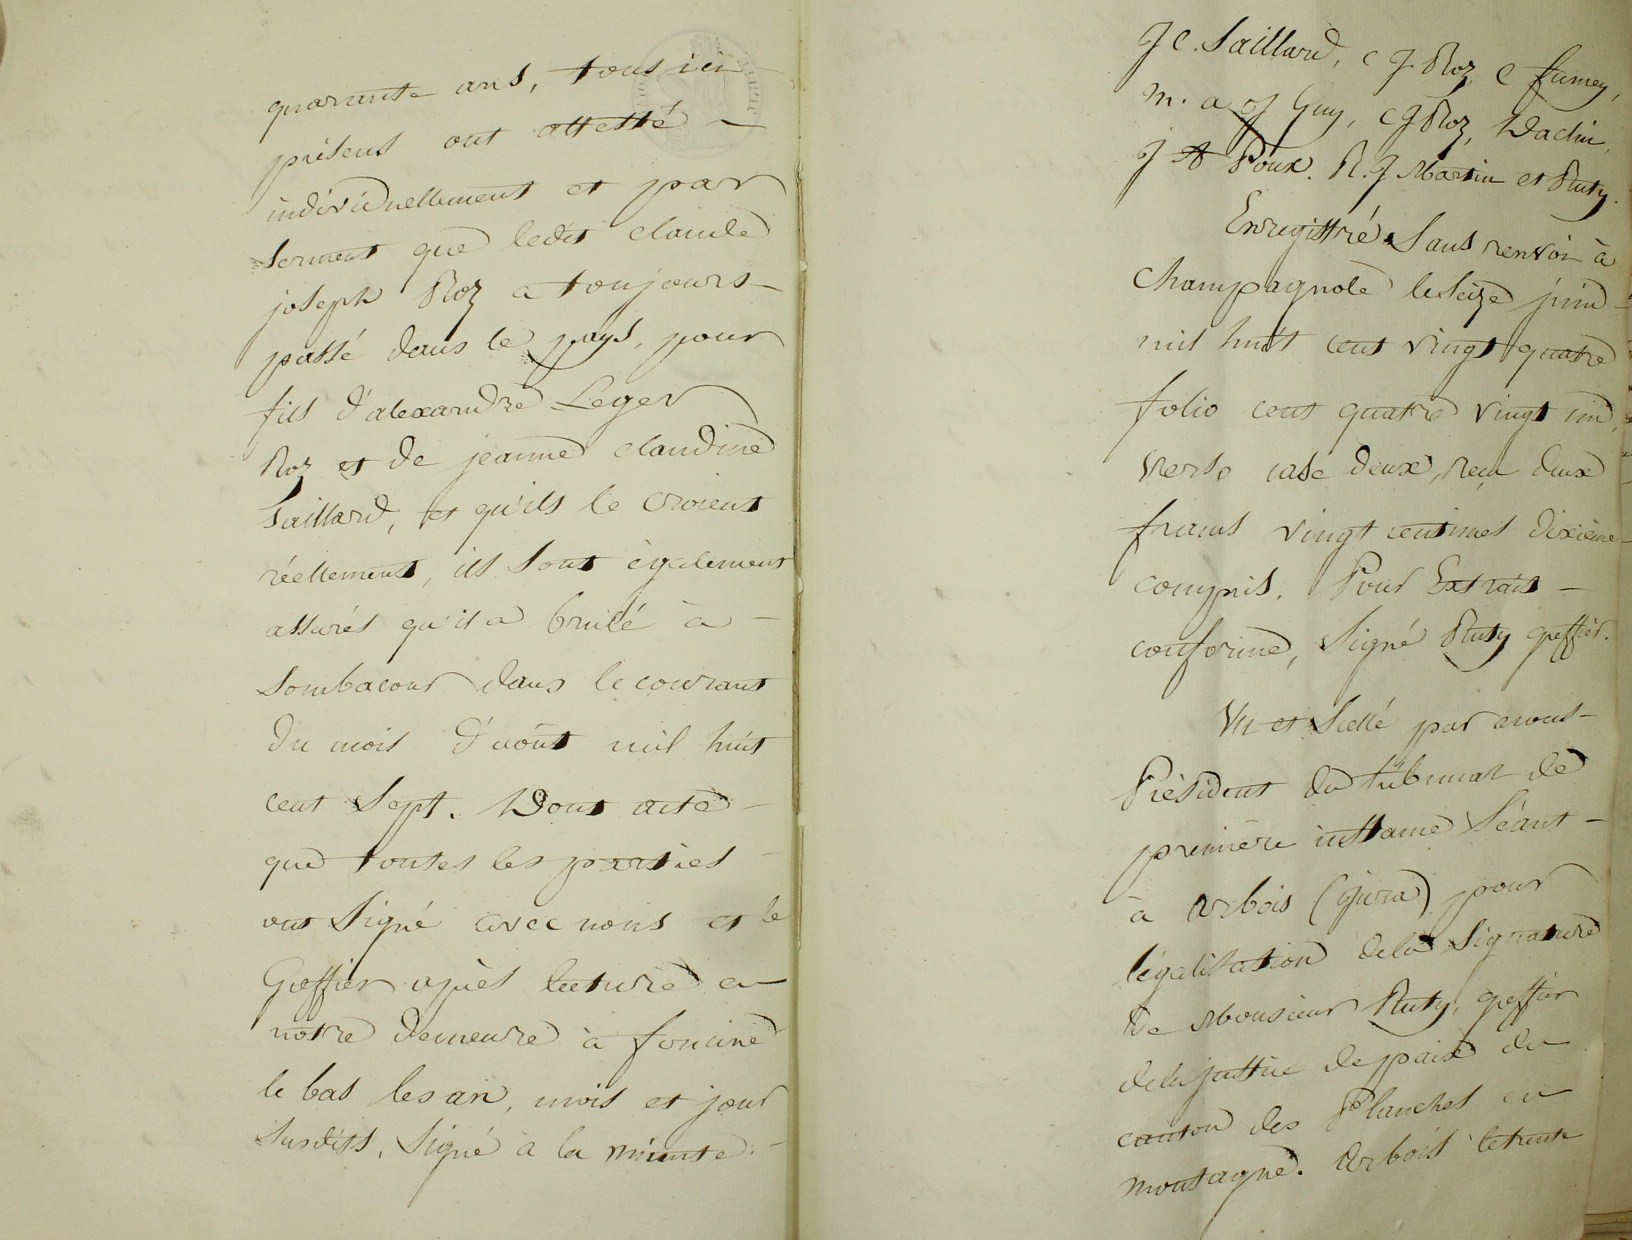 quarante ans, tous ici
présens ont attesté —
individuellement et par
serment que ledit claude
joseph Roz a toujours —
passé dans le pays, pour
fils d'alexandre Leger
Roz et de jeanne claudine
Saillard, et qu'ils le croient
réellement, ils sont également
assurés qu'il a brulé à —
Sombacour dans le courant
du mois d'août mil huit
cent sept. Dont acte —
que toutes les parties —
ont signé avec nous et le
Greffier après lecture en
notre demeure à foncine
le bas les an, mois et jour
susdits. Signé à la minute. —
J C. Saillard, C J. Roz, C fumey,
m. a J Guy, C J Roz, Vachin,
J A Poux. R. J Martin et Ruty.
Enregistré sans renvoi à
Champagnole le seize juin
mil huit cent vingt quatre
folio cent quatre vingt un,
verso case deux, reçu deux
francs vingt centimes dixième
compris. Pour Extrait —
conforme, Signé Ruty greffier.
Vu et Scellé par nous —
Président du tribunal de
première instance séant —
à arbois (jura) pour
légalisation de la signature
de Monsieur Ruty, greffier
de la justice de paix du
canton des Planches en
montagne. Arbois le trente